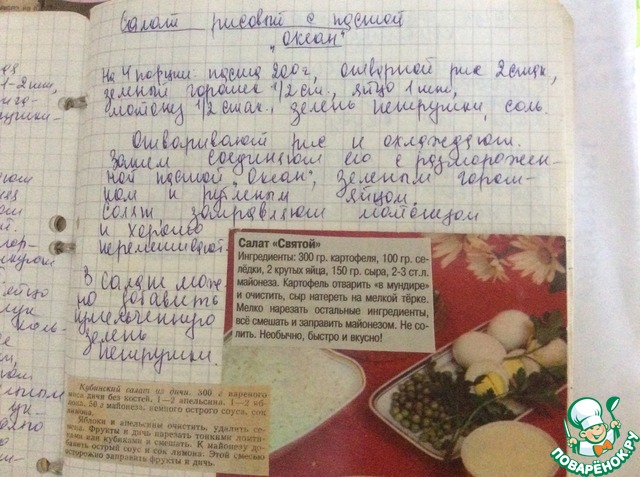 Салат рисовый с пастой
"Океан"
На 4 порции: паста 200г, отварной рис 2 стак,
зеленый горошек 1/2 ст., яйцо 1 шт,
майонез 1/2 стак., зелень петрушки, соль.
Отваривают рис и охлаждают.
Затем соединяют его с разморожен-
ной пастой "Океан", зеленым горош-
ком и рубленым яйцом.
Салат заправляют майонезом
и хорошо
перемешивают.
В салат мож-
но добавить
измельченную
зелень
петрушки.
Салат «Святой»
Ингредиенты: 300 гр. картофеля, 100 гр. се-
лёдки, 2 крутых яйца, 150 гр. сыра, 2-3 ст.л.
майонеза. Картофель отварить «в мундире»
и очистить, сыр натереть на мелкой тёрке.
Мелко нарезать остальные ингредиенты,
всё смешать и заправить майонезом. Не со-
лить. Необычно, быстро и вкусно!
Кубинский салат из дичи. 300 г вареного
мяса дичи без костей, 1—2 апельсина, 1—2 яб-
лока, 50 г майонеза, немного острого соуса, сок
лимона.
Яблоки и апельсины очистить, удалить се-
мена. Фрукты и дичь нарезать тонкими ломти-
ками или кубиками и смешать. К майонезу до-
бавить острый соус и сок лимона. Этой смесью
осторожно заправить фрукты и дичь.
ПОВАРЁНОК.РУ